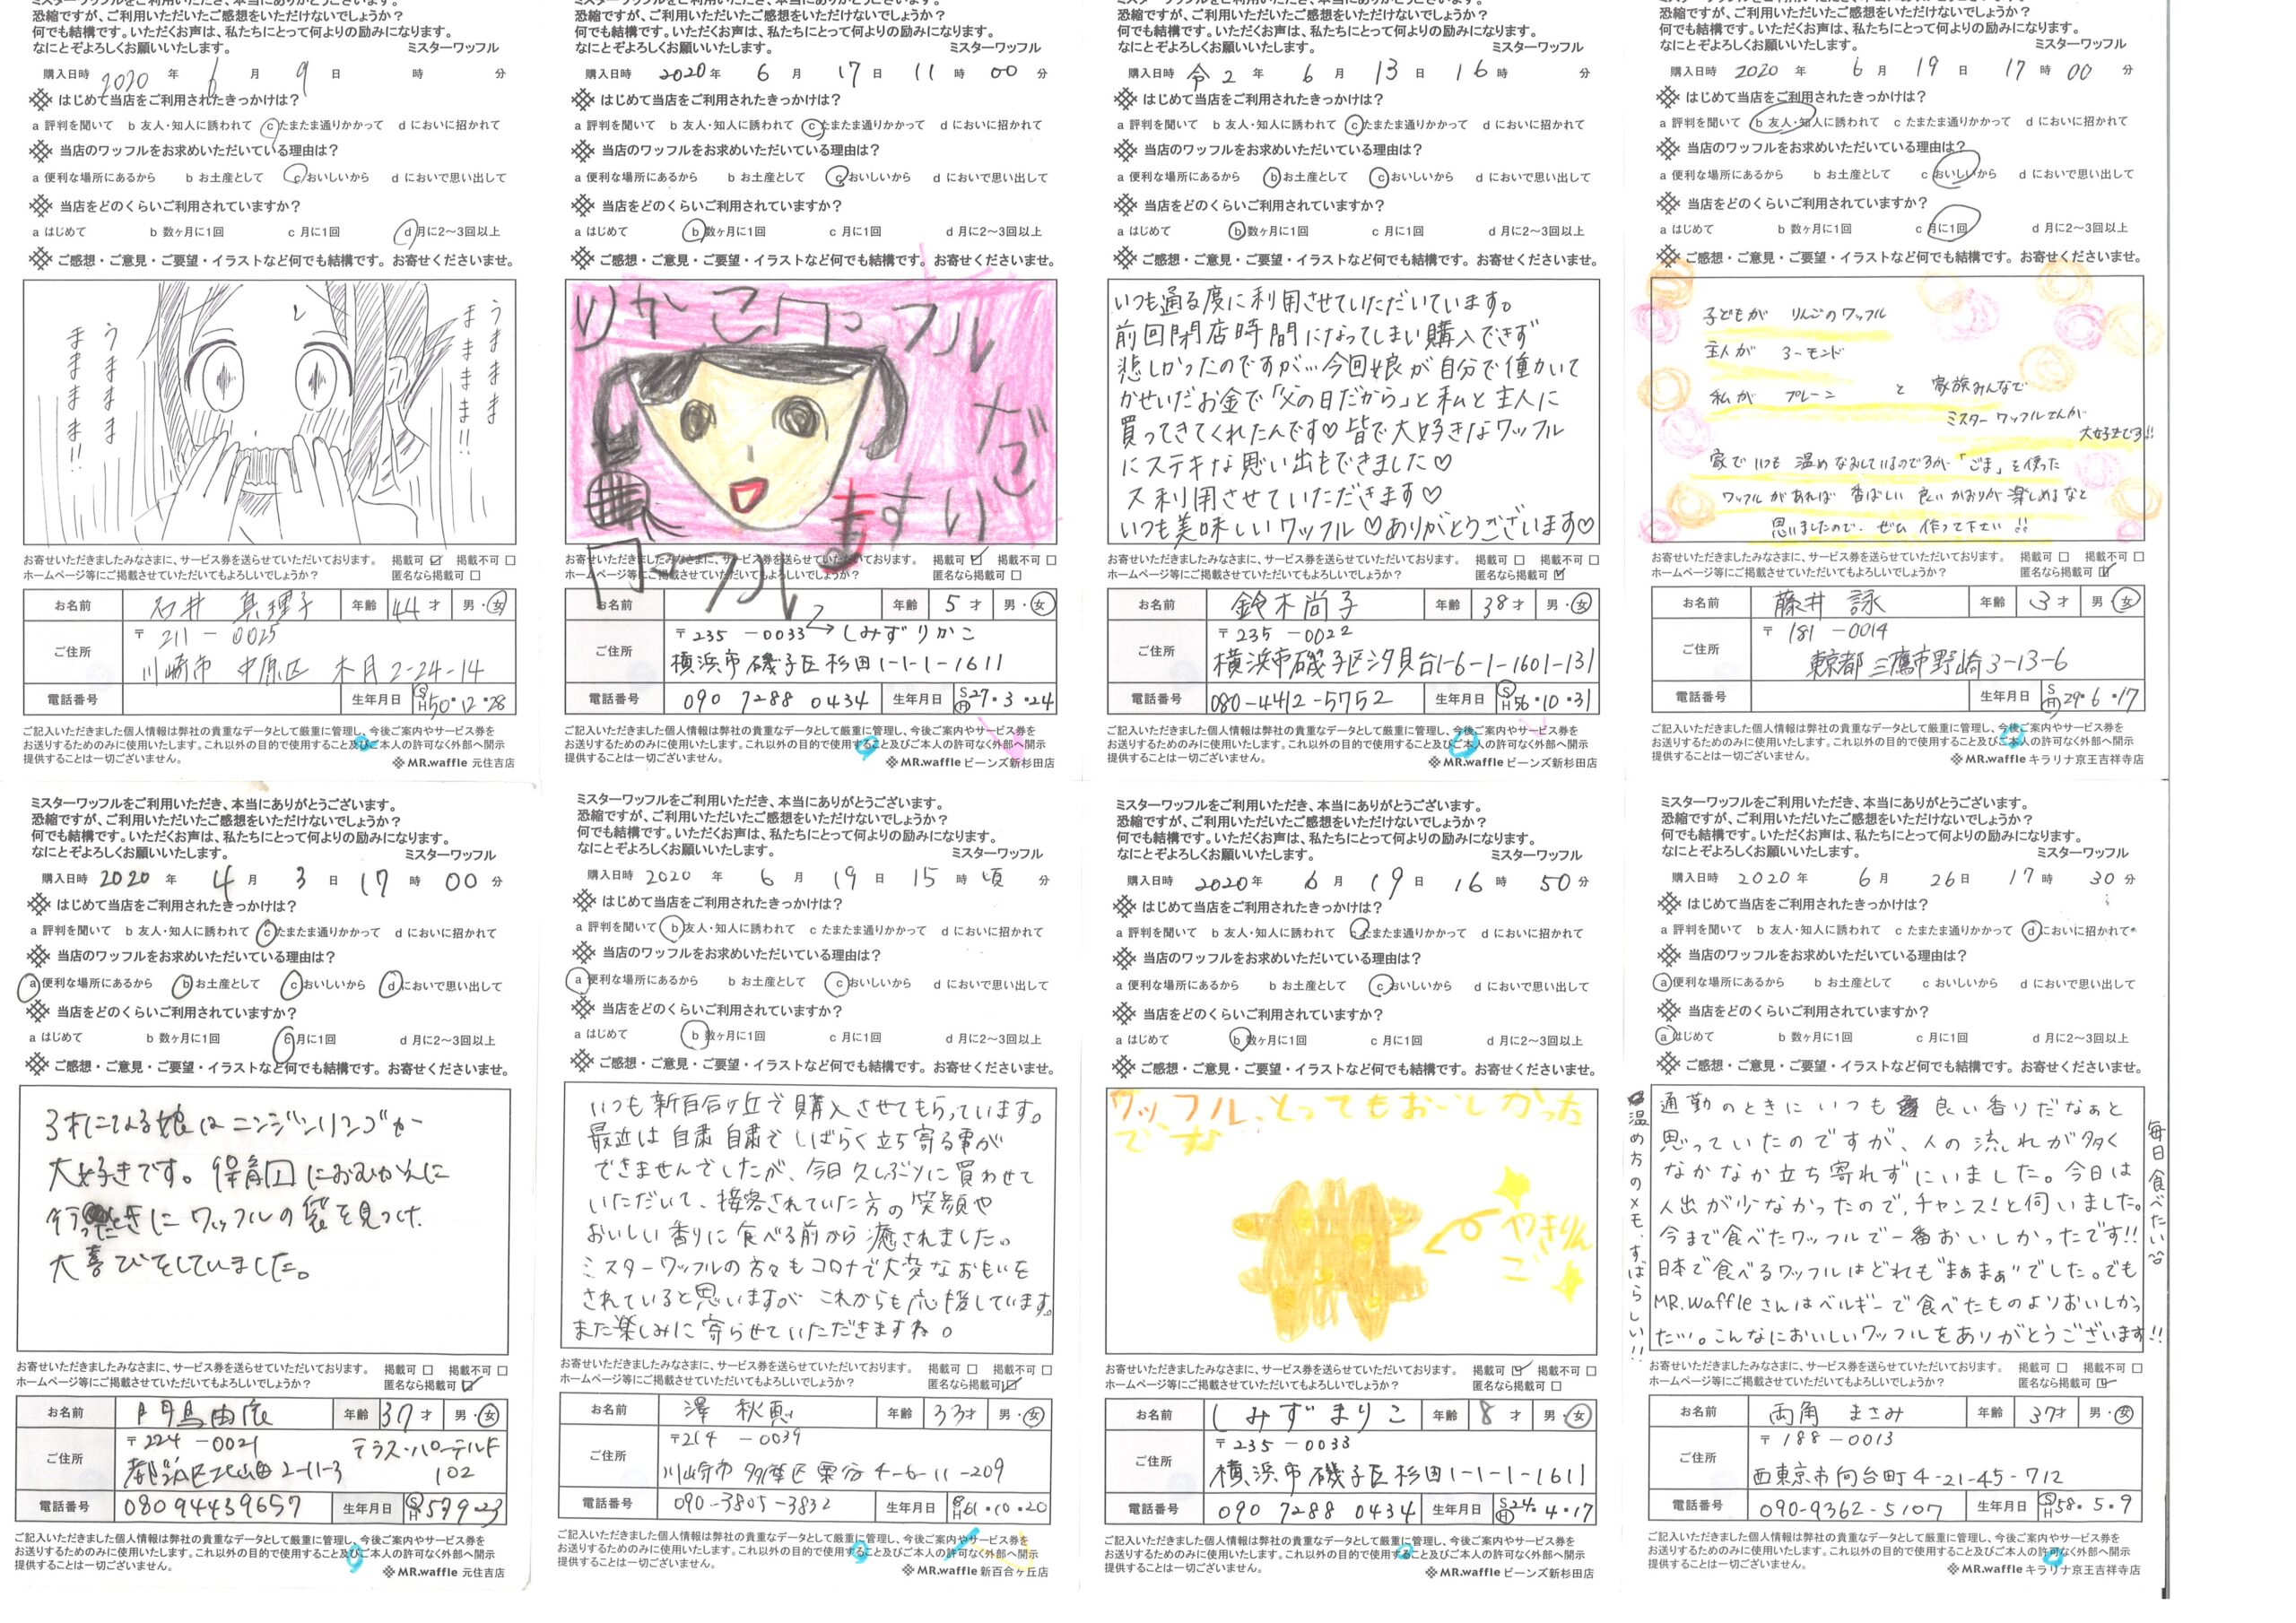 ミスターワッフルをご利用いただき、本当にありがとうございます。
恐縮ですが、ご利用いただいたご感想をいただけないでしょうか?
何でも結構です。いただくお声は、私たちにとって何よりの励みになります。
なにとぞよろしくお願いいたします。 ミスターワッフル
購入日時 2020年 6月 9日 時 分
はじめて当店をご利用されたきっかけは?
a 評判を聞いて b 友人・知人に誘われて c たまたま通りかかって d においに招かれて
当店のワッフルをお求めいただいている理由は?
a 便利な場所にあるから b お土産として c おいしいから d においで思い出して
当店をどのくらいご利用されていますか?
a はじめて b 数ヶ月に1回 c 月に1回 d 月に2〜3回以上
ご感想・ご意見・ご要望・イラストなど何でも結構です。お寄せくださいませ。
うままま
まままま!!
うままま
ままままま!!
お寄せいただきましたみなさまに、サービス券を送らせていただいております。 掲載可 掲載不可
ホームページ等にご掲載させていただいてもよろしいでしょうか? 匿名なら掲載可
お名前 石井 真理子 年齢 44才 男・女
ご住所 〒211-0025
川崎市 中原区 木月 2-24-14
電話番号 生年月日 S H 50・12・28
ご記入いただきました個人情報は弊社の貴重なデータとして厳重に管理し、今後ご案内やサービス券を
お送りするためのみに使用いたします。これ以外の目的で使用すること及びご本人の許可なく外部へ開示
提供することは一切ございません。
MR.waffle 元住吉店
恐縮ですが、ご利用いただいたご感想をいただけないでしょうか?
何でも結構です。いただくお声は、私たちにとって何よりの励みになります。
なにとぞよろしくお願いいたします。 ミスターワッフル
購入日時 2020年 6月 17日 11時 00分
はじめて当店をご利用されたきっかけは?
a 評判を聞いて b 友人・知人に誘われて c たまたま通りかかって d においに招かれて
当店のワッフルをお求めいただいている理由は?
a 便利な場所にあるから b お土産として c おいしいから d においで思い出して
当店をどのくらいご利用されていますか?
a はじめて b 数ヶ月に1回 c 月に1回 d 月に2〜3回以上
ご感想・ご意見・ご要望・イラストなど何でも結構です。お寄せくださいませ。
りかこワッフル
だいす
き
お寄せいただきましたみなさまに、サービス券を送らせていただいております。 掲載可 掲載不可
ホームページ等にご掲載させていただいてもよろしいでしょうか? 匿名なら掲載可
お名前 年齢 5才 男・女
ご住所 〒235-0033 しみずりかこ
横浜市磯子区杉田1-1-1-1611
電話番号 090 7288 0434 生年月日 S H 27・3・24
ご記入いただきました個人情報は弊社の貴重なデータとして厳重に管理し、今後ご案内やサービス券を
お送りするためのみに使用いたします。これ以外の目的で使用すること及びご本人の許可なく外部へ開示
提供することは一切ございません。
MR.waffle ビーンズ新杉田店
恐縮ですが、ご利用いただいたご感想をいただけないでしょうか?
何でも結構です。いただくお声は、私たちにとって何よりの励みになります。
なにとぞよろしくお願いいたします。 ミスターワッフル
購入日時 令2年 6月 13日 16時 分
はじめて当店をご利用されたきっかけは?
a 評判を聞いて b 友人・知人に誘われて c たまたま通りかかって d においに招かれて
当店のワッフルをお求めいただいている理由は?
a 便利な場所にあるから b お土産として c おいしいから d においで思い出して
当店をどのくらいご利用されていますか?
a はじめて b 数ヶ月に1回 c 月に1回 d 月に2〜3回以上
ご感想・ご意見・ご要望・イラストなど何でも結構です。お寄せくださいませ。
いつも通る度に利用させていただいています。
前回閉店時間になってしまい購入できず
悲しかったのですが…今回娘が自分で働かいて
かせいだお金で「父の日だから」と私と主人に
買ってきてくれたんです♡皆で大好きなワッフル
にステキな思い出もできました♡
又利用させていただきます♡
いつも美味しいワッフル♡ありがとうございます♡
お寄せいただきましたみなさまに、サービス券を送らせていただいております。 掲載可 掲載不可
ホームページ等にご掲載させていただいてもよろしいでしょうか? 匿名なら掲載可
お名前 鈴木尚子 年齢 38才 男・女
ご住所 〒235-0022
横浜市磯子区汐見台1-6-1-1601-131
電話番号 080-4412-5752 生年月日 S H 56・10・31
ご記入いただきました個人情報は弊社の貴重なデータとして厳重に管理し、今後ご案内やサービス券を
お送りするためのみに使用いたします。これ以外の目的で使用すること及びご本人の許可なく外部へ開示
提供することは一切ございません。
MR.waffle ビーンズ新杉田店
恐縮ですが、ご利用いただいたご感想をいただけないでしょうか?
何でも結構です。いただくお声は、私たちにとって何よりの励みになります。
なにとぞよろしくお願いいたします。 ミスターワッフル
購入日時 2020年 6月 19日 17時 00分
はじめて当店をご利用されたきっかけは?
a 評判を聞いて b 友人・知人に誘われて c たまたま通りかかって d においに招かれて
当店のワッフルをお求めいただいている理由は?
a 便利な場所にあるから b お土産として c おいしいから d においで思い出して
当店をどのくらいご利用されていますか?
a はじめて b 数ヶ月に1回 c 月に1回 d 月に2〜3回以上
ご感想・ご意見・ご要望・イラストなど何でも結構です。お寄せくださいませ。
子どもが りんごのワッフル
主人が アーモンド
私が プレーン と 家族みんなで
ミスターワッフルさんが
大好きです!!
家でいつも温めなおしているのですが「ごま」を使った
ワッフルがあれば 香ばしい 良いかおりが楽しめるなと
思いましたので、ぜひ 作って下さい!!
お寄せいただきましたみなさまに、サービス券を送らせていただいております。 掲載可 掲載不可
ホームページ等にご掲載させていただいてもよろしいでしょうか? 匿名なら掲載可
お名前 藤井 詠 年齢 3才 男・女
ご住所 〒181-0014
東京都三鷹市野崎3-13-6
電話番号 生年月日 S H 29・6・17
ご記入いただきました個人情報は弊社の貴重なデータとして厳重に管理し、今後ご案内やサービス券を
お送りするためのみに使用いたします。これ以外の目的で使用すること及びご本人の許可なく外部へ開示
提供することは一切ございません。
MR.waffle キラリナ京王吉祥寺店
ミスターワッフルをご利用いただき、本当にありがとうございます。
恐縮ですが、ご利用いただいたご感想をいただけないでしょうか?
何でも結構です。いただくお声は、私たちにとって何よりの励みになります。
なにとぞよろしくお願いいたします。 ミスターワッフル
購入日時 2020年 4月 3日 17時 00分
はじめて当店をご利用されたきっかけは?
a 評判を聞いて b 友人・知人に誘われて c たまたま通りかかって d においに招かれて
当店のワッフルをお求めいただいている理由は?
a 便利な場所にあるから b お土産として c おいしいから d においで思い出して
当店をどのくらいご利用されていますか?
a はじめて b 数ヶ月に1回 c 月に1回 d 月に2〜3回以上
ご感想・ご意見・ご要望・イラストなど何でも結構です。お寄せくださいませ。
3才になる娘はニンジンリンゴが
大好きです。保育園におむかえに
行ったときにワッフルの袋を見つけ、
大喜びをしていました。
お寄せいただきましたみなさまに、サービス券を送らせていただいております。 掲載可 掲載不可
ホームページ等にご掲載させていただいてもよろしいでしょうか? 匿名なら掲載可
お名前 年齢 37才 男・女
ご住所 〒224-0021 テラス・パーテルK
都筑区北山田2-11-3 102
電話番号 08094439657 生年月日 S H 57 9・23
ご記入いただきました個人情報は弊社の貴重なデータとして厳重に管理し、今後ご案内やサービス券を
お送りするためのみに使用いたします。これ以外の目的で使用すること及びご本人の許可なく外部へ開示
提供することは一切ございません。
MR.waffle 元住吉店
ミスターワッフルをご利用いただき、本当にありがとうございます。
恐縮ですが、ご利用いただいたご感想をいただけないでしょうか?
何でも結構です。いただくお声は、私たちにとって何よりの励みになります。
なにとぞよろしくお願いいたします。 ミスターワッフル
購入日時 2020年 6月 19日 15時頃 分
はじめて当店をご利用されたきっかけは?
a 評判を聞いて b 友人・知人に誘われて c たまたま通りかかって d においに招かれて
当店のワッフルをお求めいただいている理由は?
a 便利な場所にあるから b お土産として c おいしいから d においで思い出して
当店をどのくらいご利用されていますか?
a はじめて b 数ヶ月に1回 c 月に1回 d 月に2〜3回以上
ご感想・ご意見・ご要望・イラストなど何でも結構です。お寄せくださいませ。
いつも新百合ヶ丘で購入させてもらっています。
最近は自粛自粛でしばらく立ち寄る事が
できませんでしたが、今日久しぶりに買わせて
いただいて、接客されていた方の笑顔や
おいしい香りに食べる前から癒されました。
ミスターワッフルの方々もコロナで大変なおもいを
されていると思いますが これからも応援しています。
また楽しみに寄らせていただきますね。
お寄せいただきましたみなさまに、サービス券を送らせていただいております。 掲載可 掲載不可
ホームページ等にご掲載させていただいてもよろしいでしょうか? 匿名なら掲載可
お名前 澤 秋恵 年齢 33才 男・女
ご住所 〒214-0039
川崎市多摩区栗谷4-6-11-209
電話番号 090-3805-3832 生年月日 S H 61・10・20
ご記入いただきました個人情報は弊社の貴重なデータとして厳重に管理し、今後ご案内やサービス券を
お送りするためのみに使用いたします。これ以外の目的で使用すること及びご本人の許可なく外部へ開示
提供することは一切ございません。
MR.waffle 新百合ヶ丘店
ミスターワッフルをご利用いただき、本当にありがとうございます。
恐縮ですが、ご利用いただいたご感想をいただけないでしょうか?
何でも結構です。いただくお声は、私たちにとって何よりの励みになります。
なにとぞよろしくお願いいたします。 ミスターワッフル
購入日時 2020年 6月 19日 16時 50分
はじめて当店をご利用されたきっかけは?
a 評判を聞いて b 友人・知人に誘われて c たまたま通りかかって d においに招かれて
当店のワッフルをお求めいただいている理由は?
a 便利な場所にあるから b お土産として c おいしいから d においで思い出して
当店をどのくらいご利用されていますか?
a はじめて b 数ヶ月に1回 c 月に1回 d 月に2〜3回以上
ご感想・ご意見・ご要望・イラストなど何でも結構です。お寄せくださいませ。
ワッフル、とってもおいしかった
です
やきりん
ご
お寄せいただきましたみなさまに、サービス券を送らせていただいております。 掲載可 掲載不可
ホームページ等にご掲載させていただいてもよろしいでしょうか? 匿名なら掲載可
お名前 しみずまりこ 年齢 8才 男・女
ご住所 〒235-0033
横浜市磯子区杉田1-1-1-1611
電話番号 090 7288 0434 生年月日 S H 24・4・17
ご記入いただきました個人情報は弊社の貴重なデータとして厳重に管理し、今後ご案内やサービス券を
お送りするためのみに使用いたします。これ以外の目的で使用すること及びご本人の許可なく外部へ開示
提供することは一切ございません。
MR.waffle ビーンズ新杉田店
ミスターワッフルをご利用いただき、本当にありがとうございます。
恐縮ですが、ご利用いただいたご感想をいただけないでしょうか?
何でも結構です。いただくお声は、私たちにとって何よりの励みになります。
なにとぞよろしくお願いいたします。 ミスターワッフル
購入日時 2020年 6月 26日 17時 30分
はじめて当店をご利用されたきっかけは?
a 評判を聞いて b 友人・知人に誘われて c たまたま通りかかって d においに招かれて
当店のワッフルをお求めいただいている理由は?
a 便利な場所にあるから b お土産として c おいしいから d においで思い出して
当店をどのくらいご利用されていますか?
a はじめて b 数ヶ月に1回 c 月に1回 d 月に2〜3回以上
ご感想・ご意見・ご要望・イラストなど何でも結構です。お寄せくださいませ。
通勤のときにいつも良い香りだなぁと
思っていたのですが、人の流れが多く
なかなか立ち寄れずにいました。今日は
人出が少なかったので、チャンス!と伺いました。
今まで食べたワッフルで一番おいしかったです!!
日本で食べるワッフルはどれも"まぁまぁ"でした。でも
MR.Waffleさんはベルギーで食べたものよりおいしかっ
た…。こんなにおいしいワッフルをありがとうございます!!
毎日食べたい
温め方のメモ、すばらしい!!
お寄せいただきましたみなさまに、サービス券を送らせていただいております。 掲載可 掲載不可
ホームページ等にご掲載させていただいてもよろしいでしょうか? 匿名なら掲載可
お名前 両角 まさみ 年齢 37才 男・女
ご住所 〒188-0013
西東京市向台町4-21-45-712
電話番号 090-9362-5107 生年月日 S H 58・5・9
ご記入いただきました個人情報は弊社の貴重なデータとして厳重に管理し、今後ご案内やサービス券を
お送りするためのみに使用いたします。これ以外の目的で使用すること及びご本人の許可なく外部へ開示
提供することは一切ございません。
MR.waffle キラリナ京王吉祥寺店